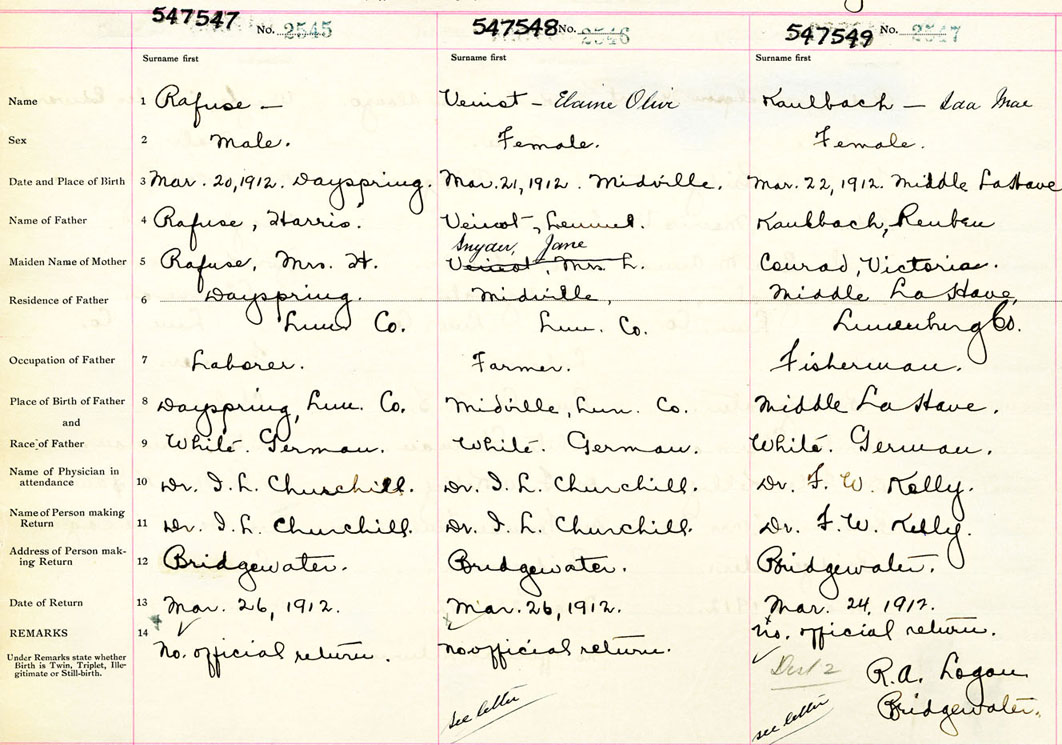 547547 No. 2545 547548 No. 2546 547549 No. 2547
Surname first Surname first Surname first
Name 1 Rafuse — Veinot — Elaine Olive Kaulbach — Ida Mae
Sex 2 Male. Female. Female.
Date and Place of Birth 3 Mar. 20, 1912. Dayspring. Mar. 21, 1912. Midville. Mar. 22, 1912. Middle LaHave
Name of Father 4 Rafuse, Harris. Veinot, Lemuel. Kaulbach, Reuben
Snyder, Jane
Maiden Name of Mother 5 Rafuse, Mrs. H. Veinot, Mrs. L. Conrad, Victoria.
Residence of Father 6 Dayspring. Midville, Middle LaHave,
Lun. Co. Lun. Co. Lunenburg Co.
Occupation of Father 7 Laborer. Farmer. Fisherman.
Place of Birth of Father 8 Dayspring, Lun. Co. Midville, Lun. Co. Middle LaHave.
and
Race of Father 9 White. German. White. German. White. German.
Name of Physician in
attendance 10 Dr. I. L. Churchill. Dr. I. L. Churchill. Dr. F. W. Kelly.
Name of Person making
Return 11 Dr. I. L. Churchill. Dr. I. L. Churchill. Dr. F. W. Kelly.
Address of Person mak-
ing Return 12 Bridgewater. Bridgewater. Bridgewater.
Date of Return 13 Mar. 26, 1912. Mar. 26, 1912. Mar. 24, 1912.
REMARKS 14 No. official return. No official return. No. official return.
Under Remarks state whether
Birth is Twin, Triplet, Ille-
gitimate or Still-birth.
Dist 2 R. A. Logan
Bridgewater.
see letter see letter